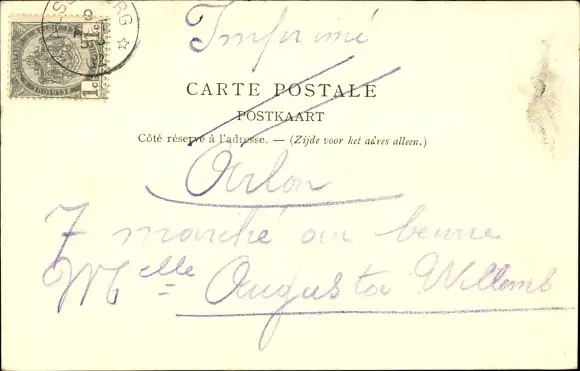 Imprimé
CARTE POSTALE
POSTKAART
Côté réservé à l'adresse. — (Zijde voor het adres alleen.)
Arlon
7 marché au beurre
Melle = Augusta Willems
1c
1c